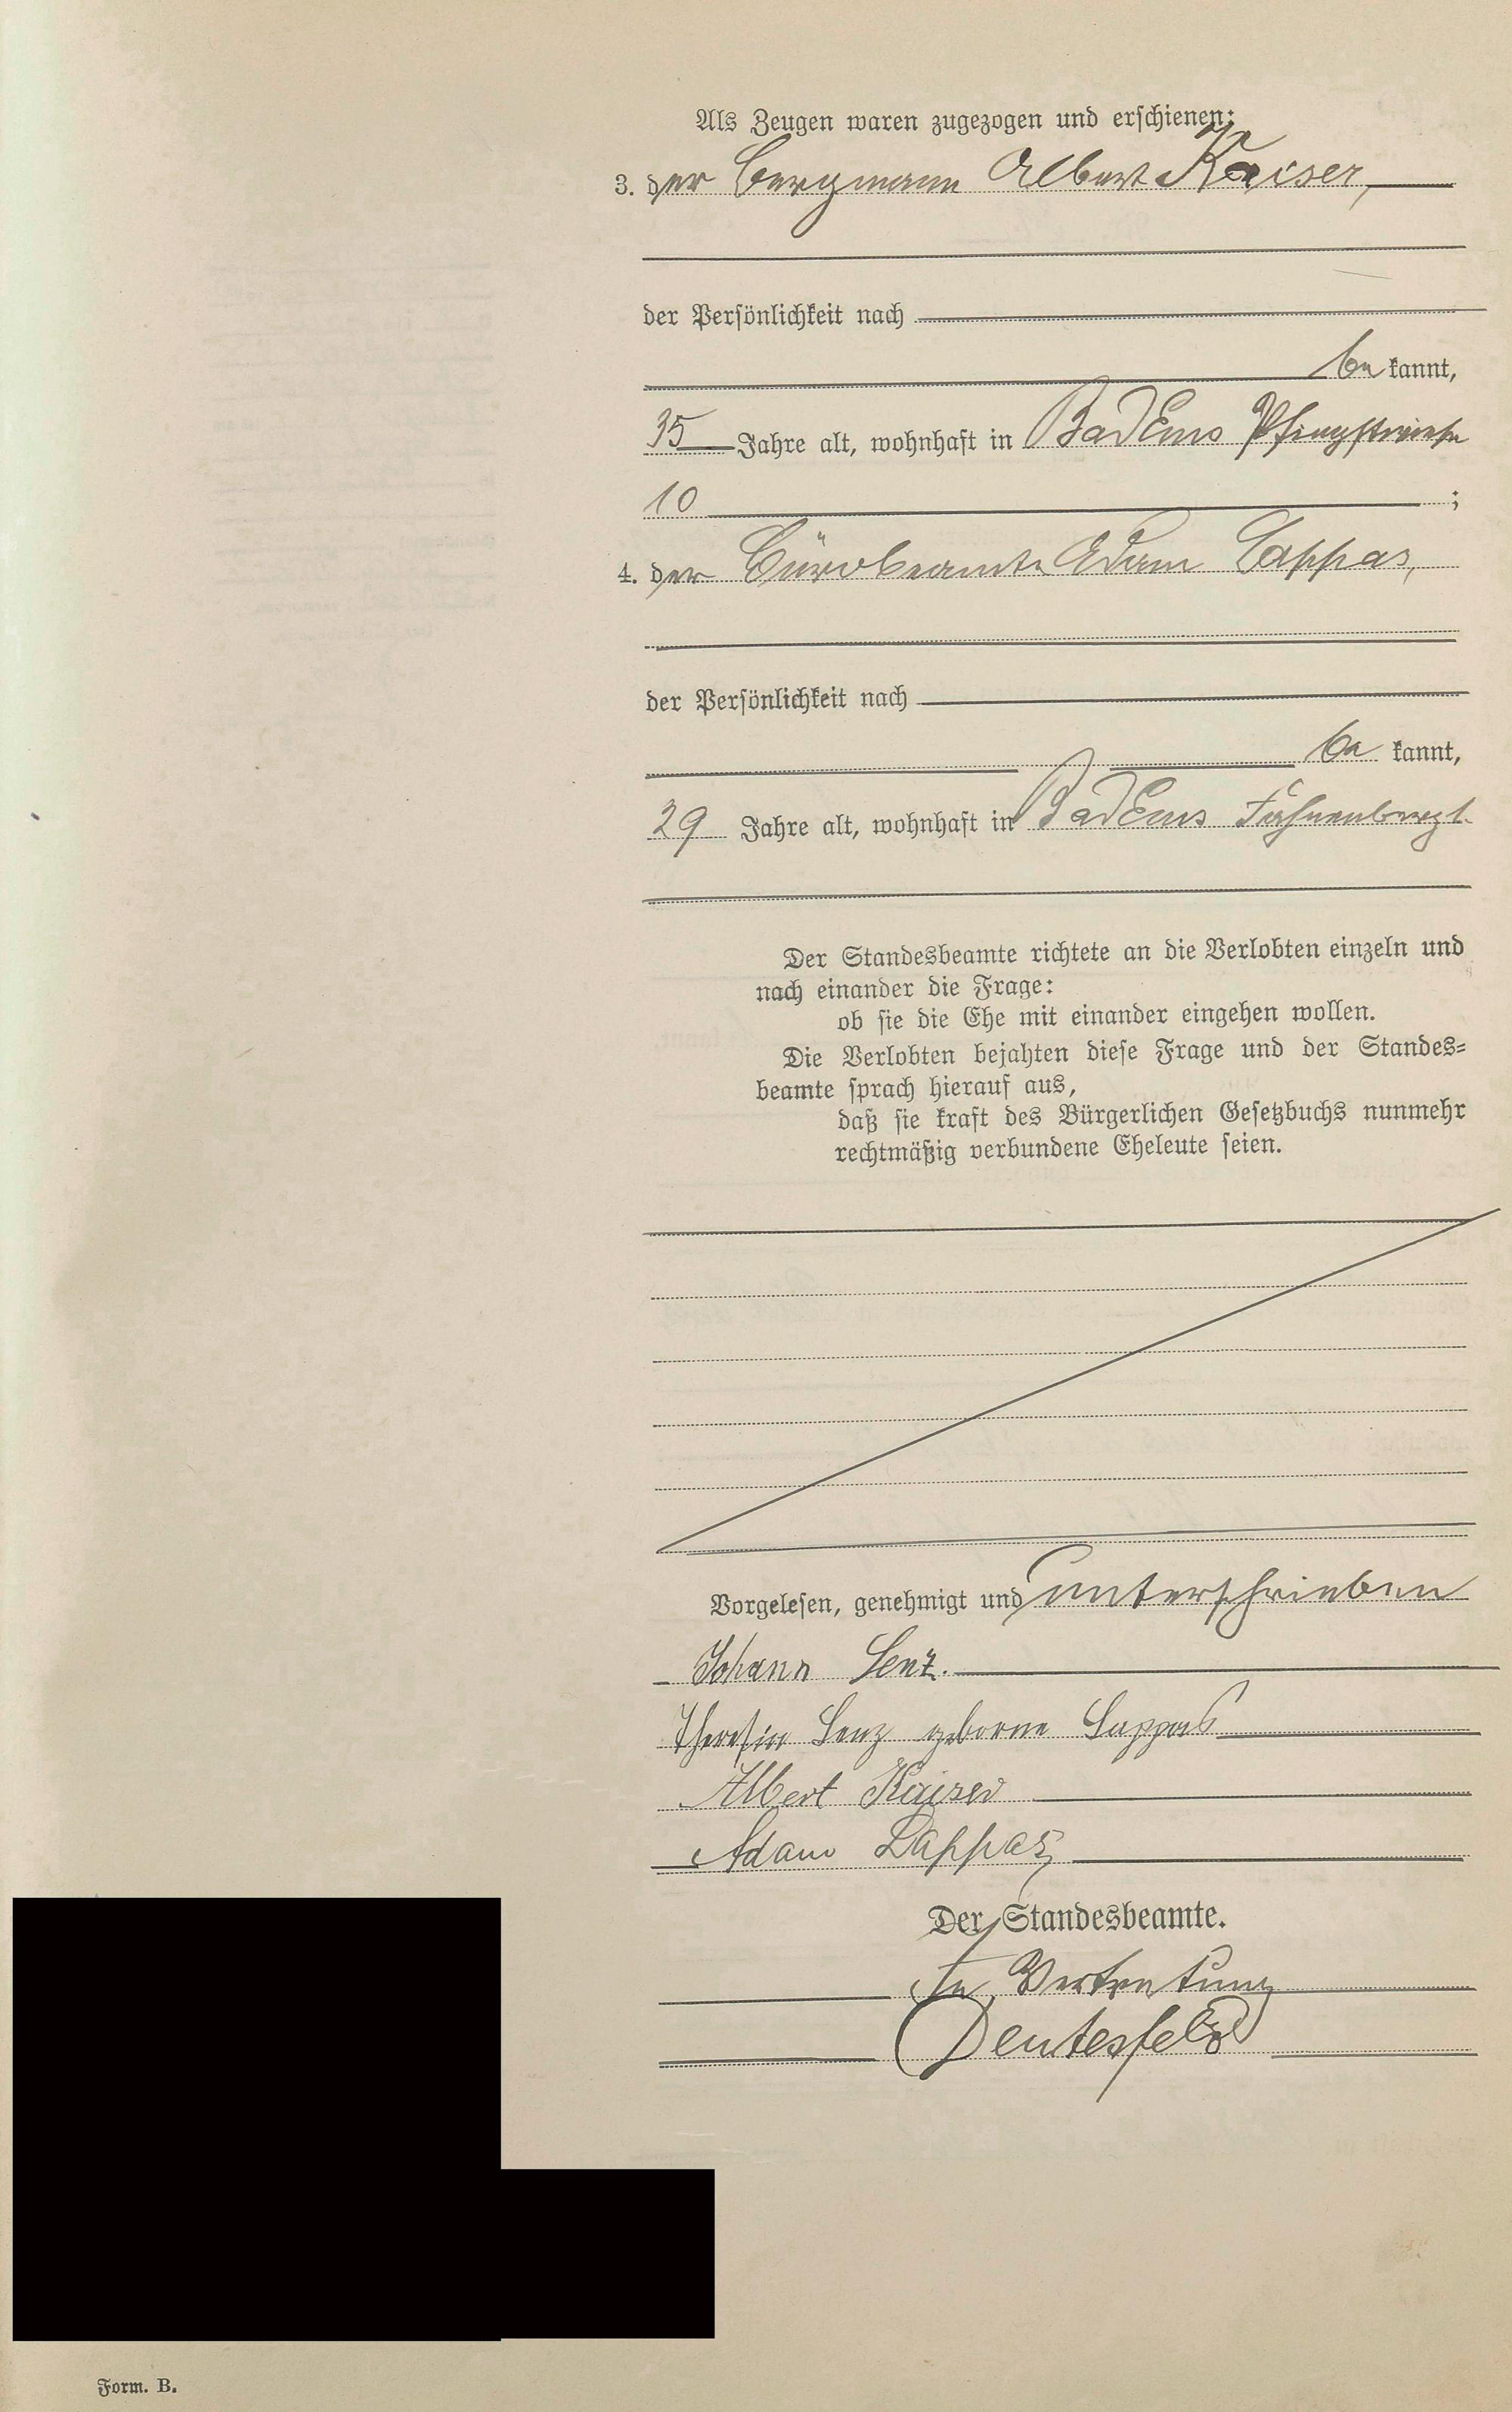 Als Zeugen waren zugezogen und erschienen:
3. der Bergmann Albert Kaiser,
der Persönlichkeit nach
be kannt,
35 Jahre alt, wohnhaft in Bad Ems Pfingstwiese
10 ;
4. der Bürobeamte Adam Lappas,
der Persönlichkeit nach
be kannt,
29 Jahre alt, wohnhaft in Bad Ems
Der Standesbeamte richtete an die Verlobten einzeln und
nach einander die Frage:
ob sie die Ehe mit einander eingehen wollen.
Die Verlobten bejahten diese Frage und der Standes=
beamte sprach hierauf aus,
daß sie kraft des Bürgerlichen Gesetzbuchs nunmehr
rechtmäßig verbundene Eheleute seien.
Vorgelesen, genehmigt und unterschrieben
Johann Lenz.
Lenz geborne Lappas
Albert Kaiser
Adam Lappas
Der Standesbeamte.
In Vertretung
Deutesfeld
Form. B.